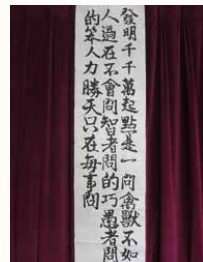 發明千千萬起點是一問禽獸不如
人過在不會問智者問的巧愚者問
的笨人力勝天只在每事問